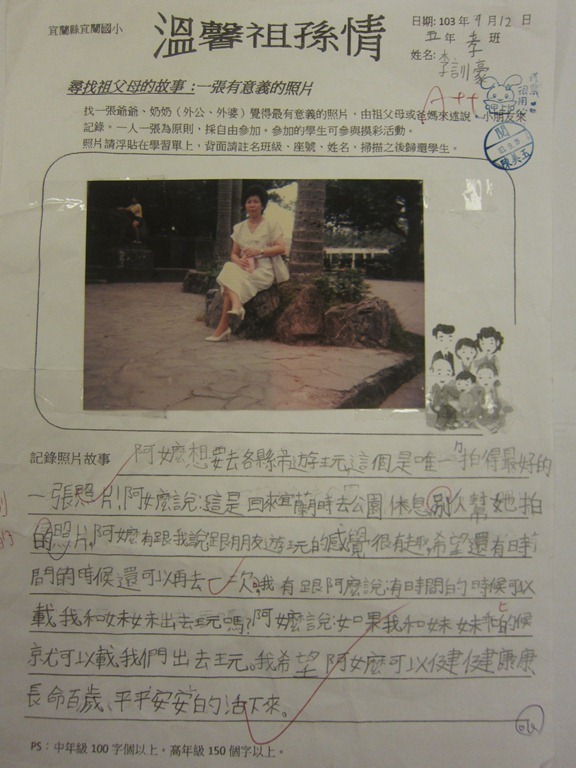 宜蘭縣宜蘭國小
溫馨祖孫情
日期: 103年 9月 12日
五年 孝 班
姓名: 李訓豪
A++
尋找祖父母的故事：一張有意義的照片
找一張爺爺、奶奶（外公、外婆）覺得最有意義的照片，由祖父母或爸媽來述說，小朋友來
記錄。一人一張為原則，採自由參加。參加的學生可參與摸彩活動。
照片請浮貼在學習單上，背面請註名班級、座號、姓名，掃描之後歸還學生。
閱
記錄照片故事
阿嬤想要去各縣市遊玩,這個是唯一拍得最好的
一張照片,阿嬤說:這是回來宜蘭時去公園休息別人幫她拍
的照片,阿嬤有跟我說跟朋友遊玩的感覺很有趣,希望還有時
間的時候還可以再去一二次,我有跟阿嬤說:有時間的時候可以
載我和妹妹出去玩嗎?阿嬤說:如果我和妹妹乖的候
就可以載我們出去玩。我希望阿嬤可以健健康康
長命百歲、平平安安的活下來。
PS：中年級 100 字個以上。高年級 150 個字以上。